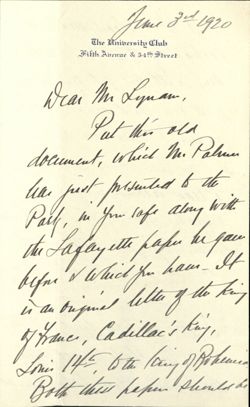 June 3rd 1920
The University Club
Fifth Avenue & 54th Street
Dear Mr Lynam,
Put this old
document, which Mr Palmer
has just presented to the
Park, in your safe along with
the Lafayette paper he gave
before & which you have — It
is an original letter of the King
of France, Cadillac's King,
Louis 14th, to the King of Bohemia
Both these papers should be